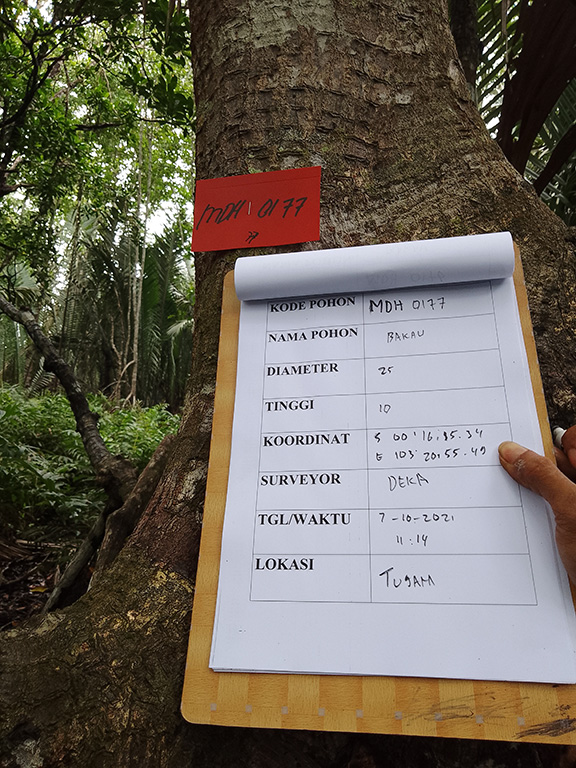 MDH 0177
KODE POHON MDH 0177
NAMA POHON BAKAU
DIAMETER 25
TINGGI 10
KOORDINAT S 00'16.85.34
E 103'20.55.49
SURVEYOR DEKA
TGL/WAKTU 7-10-2021
11:14
LOKASI TUJAM